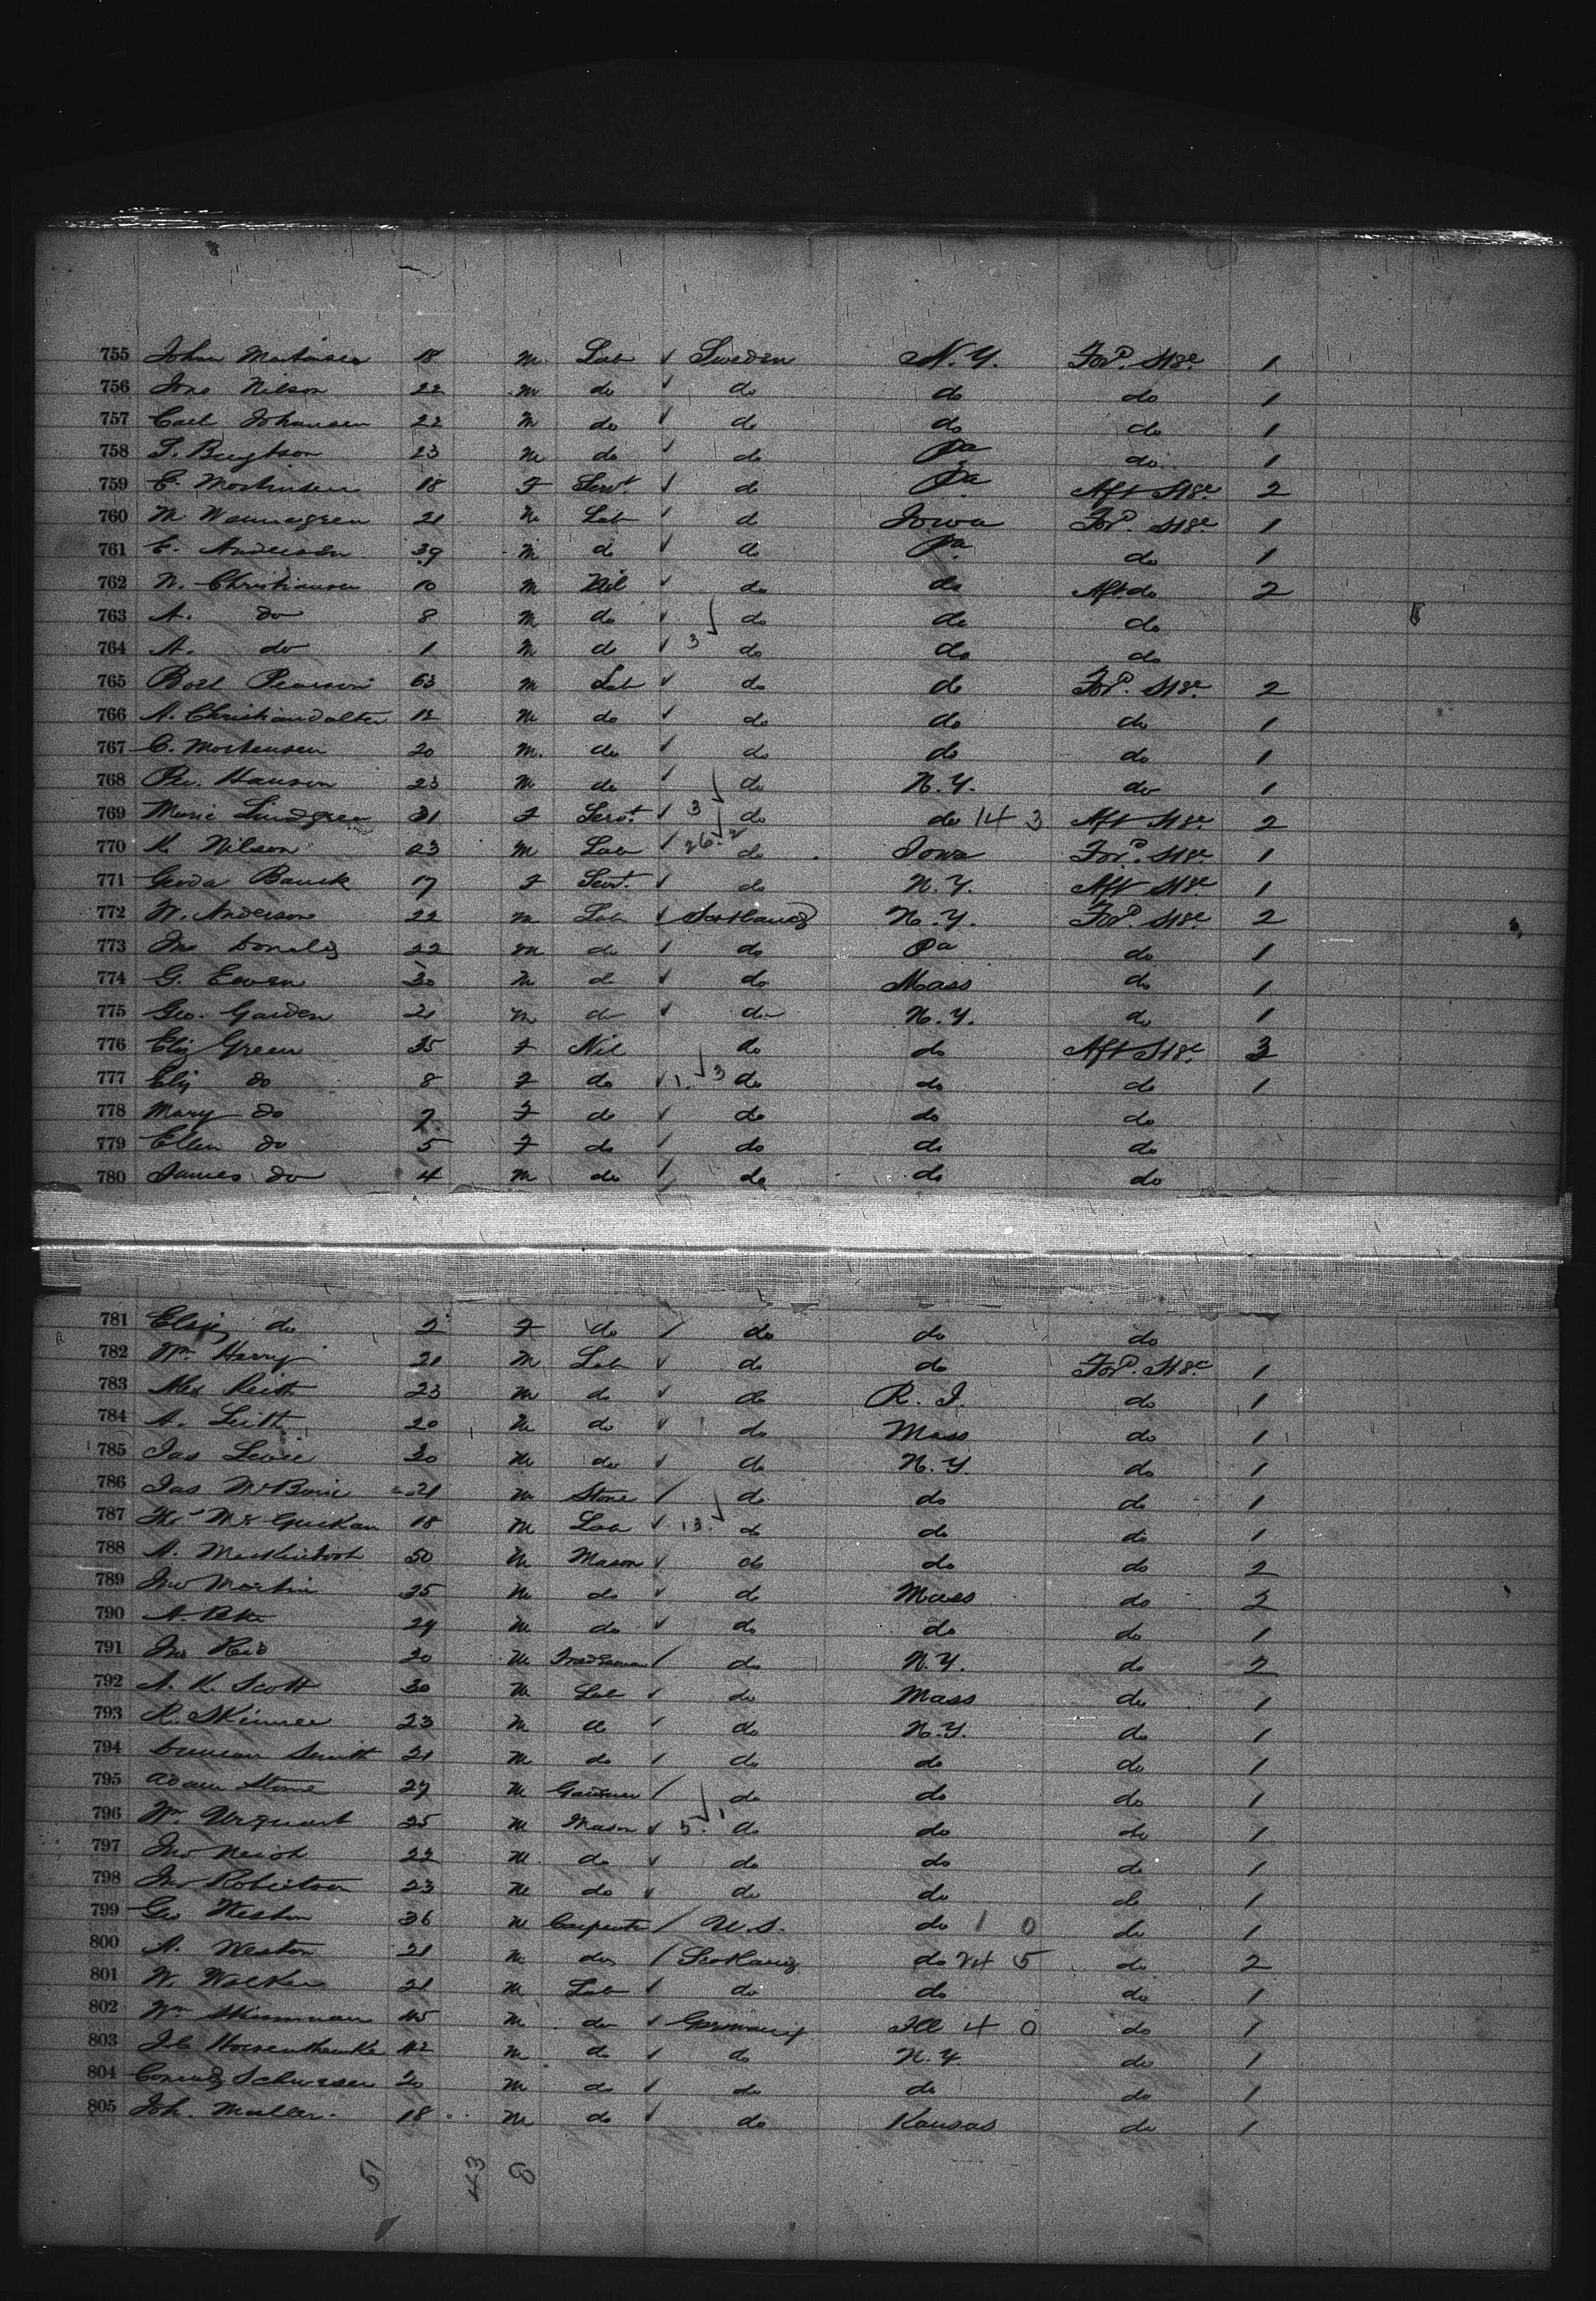 755 Johan Martinsen 18 M Lab ✓ Sweden N.Y. For'd. St'ge. 1
756 Jno Nilson 22 M do ✓ do do do 1
757 Carl Johansen 22 M do ✓ do do do 1
758 S. Bengtson 23 M do ✓ do Pa do 1
759 C. Mortinsen 18 F Servt. ✓ do Pa Aft St'ge 2
760 M 21 M Lab ✓ do Iowa For'd. St'ge 1
761 C. Anderson 39 M do ✓ do Pa do 1
762 N. Christiansen 10 M Nil ✓ do do Aft do 2
763 A. do 8 M do ✓ do do do
764 A. do 1 M do ✓ 3 do do do
765 Pearson 63 M Lab ✓ do do For'd. St'ge 2
766 A. 18 M do ✓ do do do 1
767 C. Mortensen 20 M. do ✓ do do do 1
768 Hanson 23 M do ✓ do N.Y. do 1
769 Marie Lindgren 31 F Servt. ✓ 3 do do 14 3 Aft St'ge 2
770 K. Nilson 23 M Lab ✓ 26. 2 do Iowa For'd. St'ge 1
771 Gerda Banck 17 F Servt. ✓ do N.Y. Aft St'ge 1
772 W. Anderson 22 M Lab ✓ Scotland N.Y. For'd. St'ge 2
773 Jno Donald 22 M do ✓ do Pa do 1
774 G. Ewen 30 M do ✓ do Mass do 1
775 Geo. Garden 21 M do ✓ do N.Y. do 1
776 Eliz Green 35 F Nil do do Aft St'ge 3
777 Eliz do 8 F do ✓ 1. 3 do do do 1
778 Mary do 7 F do ✓ do do do
779 Ellen do 5 F do ✓ do do do
780 James do 4 M do ✓ do do do
781 Elsie do 2 F do ✓ do do do
782 Wm. Harry 21 M Lab ✓ do do For'd. St'ge 1
783 Alex Keith 23 M do ✓ do R.I. do 1
784 A. Leith 20 M do ✓ do Mass do 1
785 Jas Levie 30 M do ✓ do N.Y. do 1
786 Jas 21 M Stone ✓ do do do 1
787 McGuckan 18 M Lab ✓ 13. do do do 1
788 A. Mackintosh 50 M Mason ✓ do do do 2
789 Jno Martin 25 M do ✓ do Mass do 2
790 A. 24 M do ✓ do do do 1
791 Jno Reid 20 M Tradesman ✓ do N.Y. do 2
792 A. K. Scott 30 M Lab ✓ do Mass do 1
793 R. Skinner 23 M do ✓ do N.Y. do 1
794 Duncan Smith 21 M do ✓ do do do 1
795 Adam Stone 27 M Gardner ✓ do do do 1
796 Wm. Urquart 25 M Mason ✓ 5. 1 do do do 1
797 Jno 22 M do ✓ do do do 1
798 Jno Robertson 23 M do ✓ do do do 1
799 Geo Weston 36 M Carpenter ✓ U.S. do 1 0 do 1
800 A. Weston 21 M do ✓ Scotland do 24 5 do 2
801 W. Walker 21 M Lab ✓ do do do 1
802 Wm 45 M do ✓ Germany Ill 4 0 do 1
803 42 M do ✓ do N.Y. do 1
804 Conrad 20 M do ✓ do do do 1
805 Joh. Muller. 18 M do ✓ do Kansas do 1
51 43 8